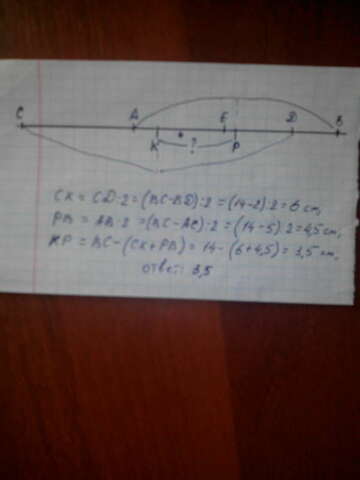 C A E D B
K ? P
CK = CD:2 = (BC-BD):2 = (14-2):2 = 6 см,
PB = AB:2 = (BC-AC):2 = (14-5):2 = 4,5 см,
KP = BC-(CK+PB) = 14-(6+4,5) = 3,5 см.
ответ: 3,5